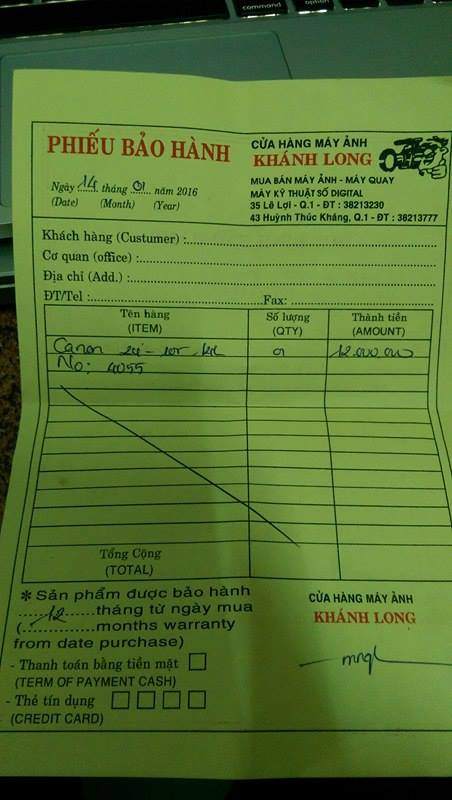 command
option
PHIẾU BẢO HÀNH
Ngày 14 tháng 01 năm 2016
(Date) (Month) (Year)
CỬA HÀNG MÁY ẢNH
KHÁNH LONG
MUA BÁN MÁY ẢNH - MÁY QUAY
MÁY KỸ THUẬT SỐ DIGITAL
35 Lê Lợi - Q.1 - ĐT : 38213230
43 Huỳnh Thúc Kháng, Q.1 - ĐT : 38213777
Khách hàng (Custumer) :
Cơ quan (office) :
Địa chỉ (Add.) :
ĐT/Tel : Fax:
Tên hàng Số lượng Thành tiền
(ITEM) (QTY) (AMOUNT)
Canon 12.000.000
No: 4055
Tổng Cộng
(TOTAL)
* Sản phẩm được bảo hành
12 tháng từ ngày mua
( months warranty
from date purchase)
- Thanh toán bằng tiền mặt
(TERM OF PAYMENT CASH)
- Thẻ tín dụng
(CREDIT CARD)
CỬA HÀNG MÁY ẢNH
KHÁNH LONG